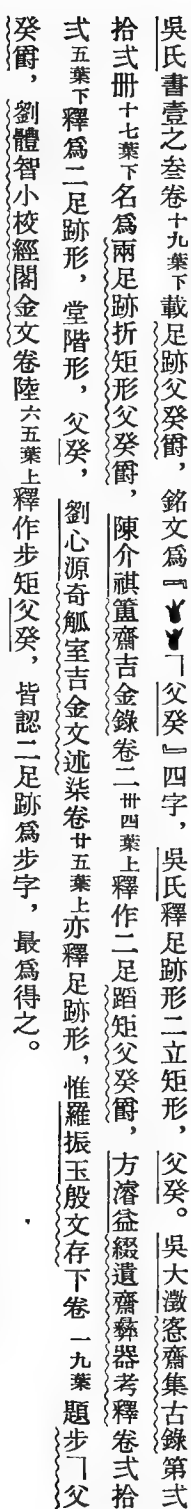 吳氏書壹之叁卷十九葉下載足跡父癸爵，銘文爲『𠃍父癸』四字，吳氏釋足跡形二立矩形，父癸。吳大澂愙齋集古錄第弍
拾弍册十七葉下名爲兩足跡折矩形父癸爵，陳介祺簠齋吉金錄卷二卅四葉上釋作二足蹈矩父癸爵，方濬益綴遺齋彝器考釋卷弍拾
弍五葉下釋爲二足跡形，堂階形，父癸，劉心源奇觚室吉金文述柒卷廿五葉上亦釋足跡形，惟羅振玉殷文存下卷一九葉題步𠃍父
癸爵，劉體智小校經閣金文卷陸六五葉上釋作步矩父癸，皆認二足跡爲步字，最爲得之。